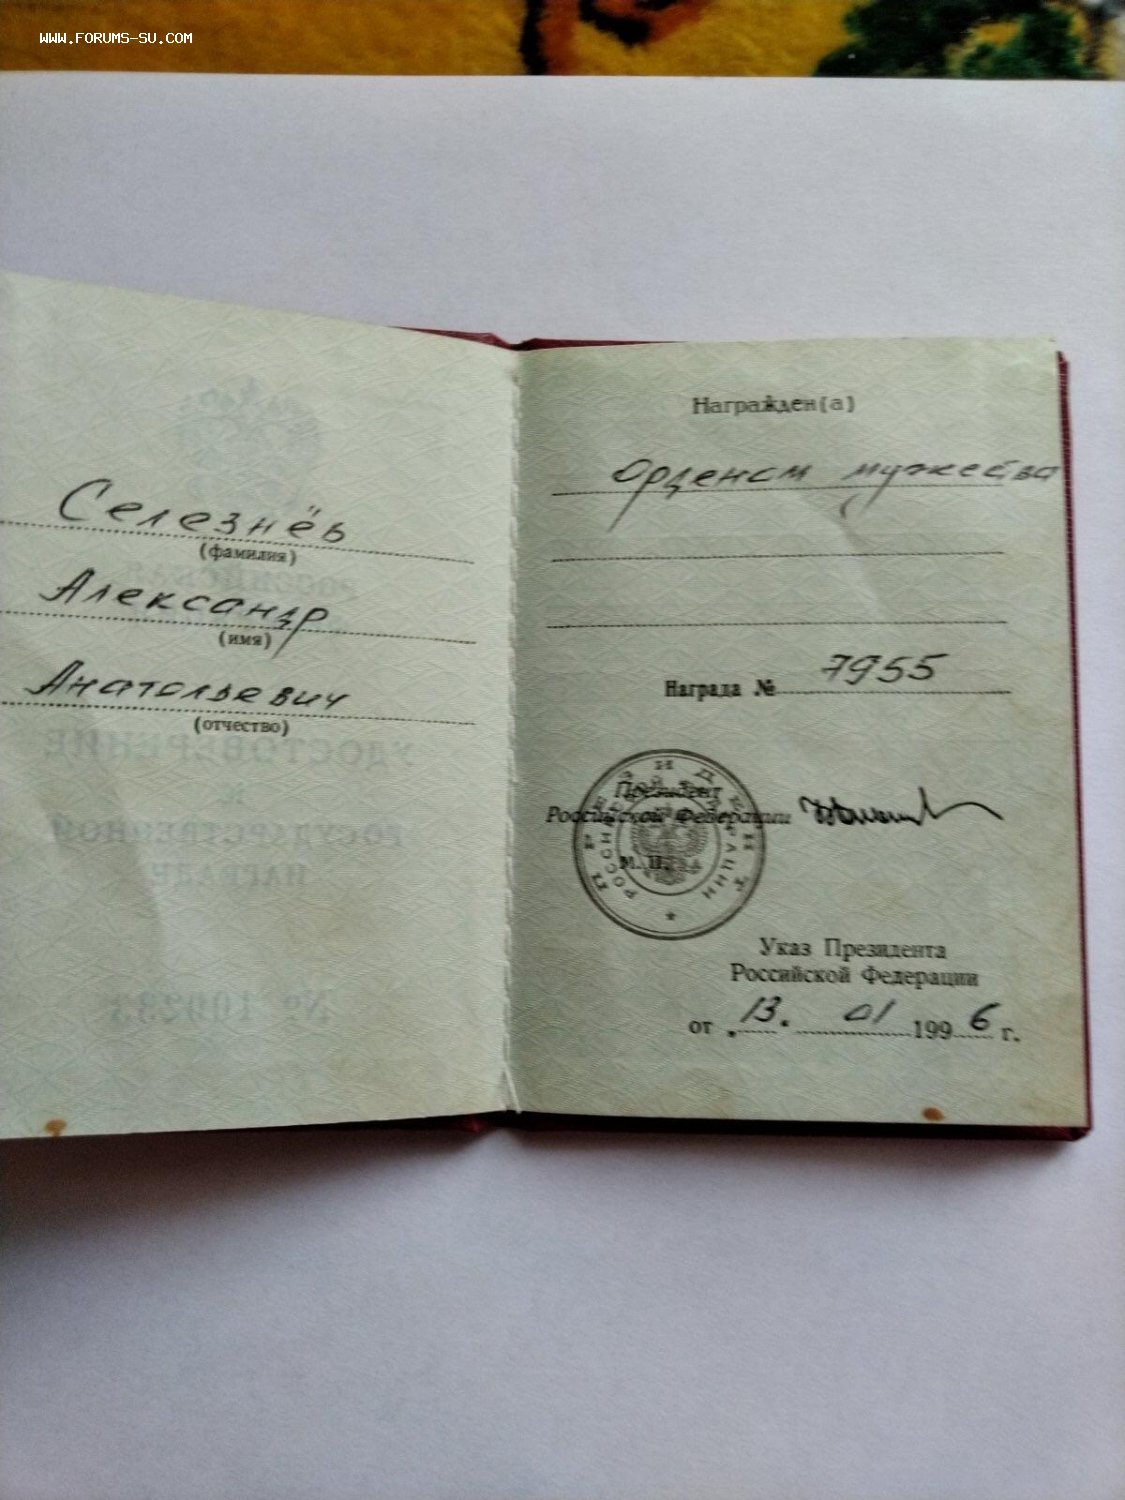 WWW.FORUMS-SU.COM
Селезнёв
(фамилия)
Александр
(имя)
Анатольевич
(отчество)
Награжден(а)
Орденом мужества
Награда № 7955
Президент
Российской Федерации
М.П.
ПРЕЗИДЕНТ
РОССИЙСКОЙ ФЕДЕРАЦИИ
Указ Президента
Российской Федерации
от „13" 01 1996 г.
УДОСТОВЕРЕНИЕ
К
ГОСУДАРСТВЕННОЙ
НАГРАДЕ